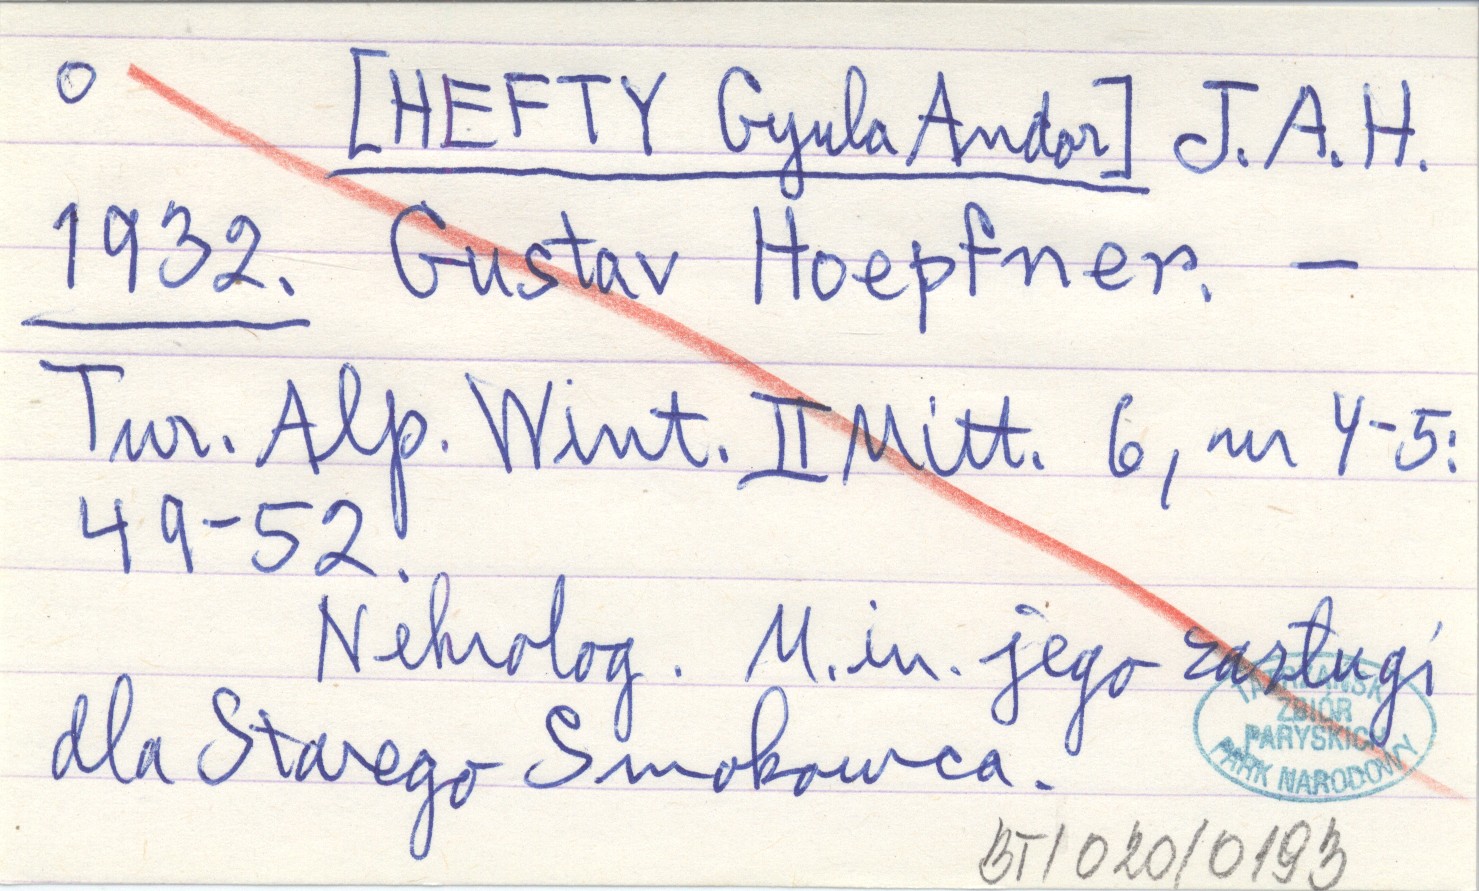 o [HEFTY Gyula Andor] J.A.H.
1932. Gustav Hoepfner. –
Tur. Alp. Wint. II Mitt. 6, nr 4-5:
49-52.
Nekrolog. M.in. jego zasługi
dla Starego Smokowca.
TATRZAŃSKI
ZBIÓR
PARYSKICH
PARK NARODOWY
BT/020/0193